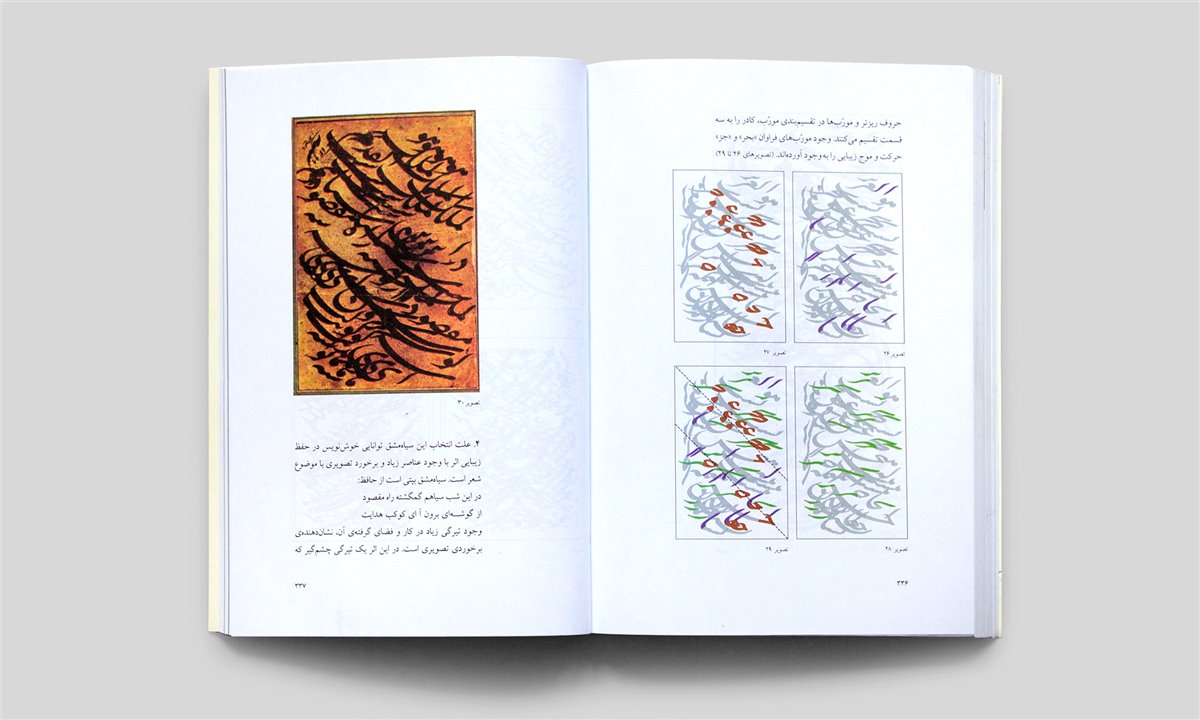 حروف ریزتر و مورّب‌ها در تقسیم‌بندی مورّب، کادر را به سه
قسمت تقسیم می‌کنند. وجود مورّب‌های فراوان «بحر» و «جز»
حرکت و موج زیبایی را به‌وجود آورده‌اند. (تصویرهای ۲۶ تا ۲۹)
تصویر ۲۶
تصویر ۲۷
تصویر ۲۸
تصویر ۲۹
۳۳۶
تصویر ۳۰
۴. علت انتخاب این سیاه‌مشق توانایی خوش‌نویس در حفظ
زیبایی اثر با وجود عناصر زیاد و برخورد تصویری با موضوع
شعر است. سیاه‌مشق بیتی است از حافظ:
در این شب سیاهم گمگشته راه مقصود
از گوشه‌ای برون آ ای کوکب هدایت
وجود تیرگی زیاد در کار و فضای گرفته‌ی آن، نشان‌دهنده‌ی
برخوردی تصویری است. در این اثر یک تیرگی چشم‌گیر که
۳۳۷